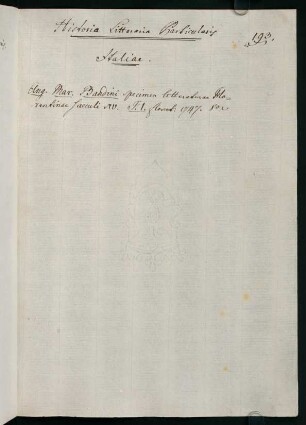 Historia Litteraria Particularis
193.
Italiae.
Ang. Mar. Bandini specimen litteraturae Flo-
rentinae saeculi XV. T. I. Florent. 1747. 8o.